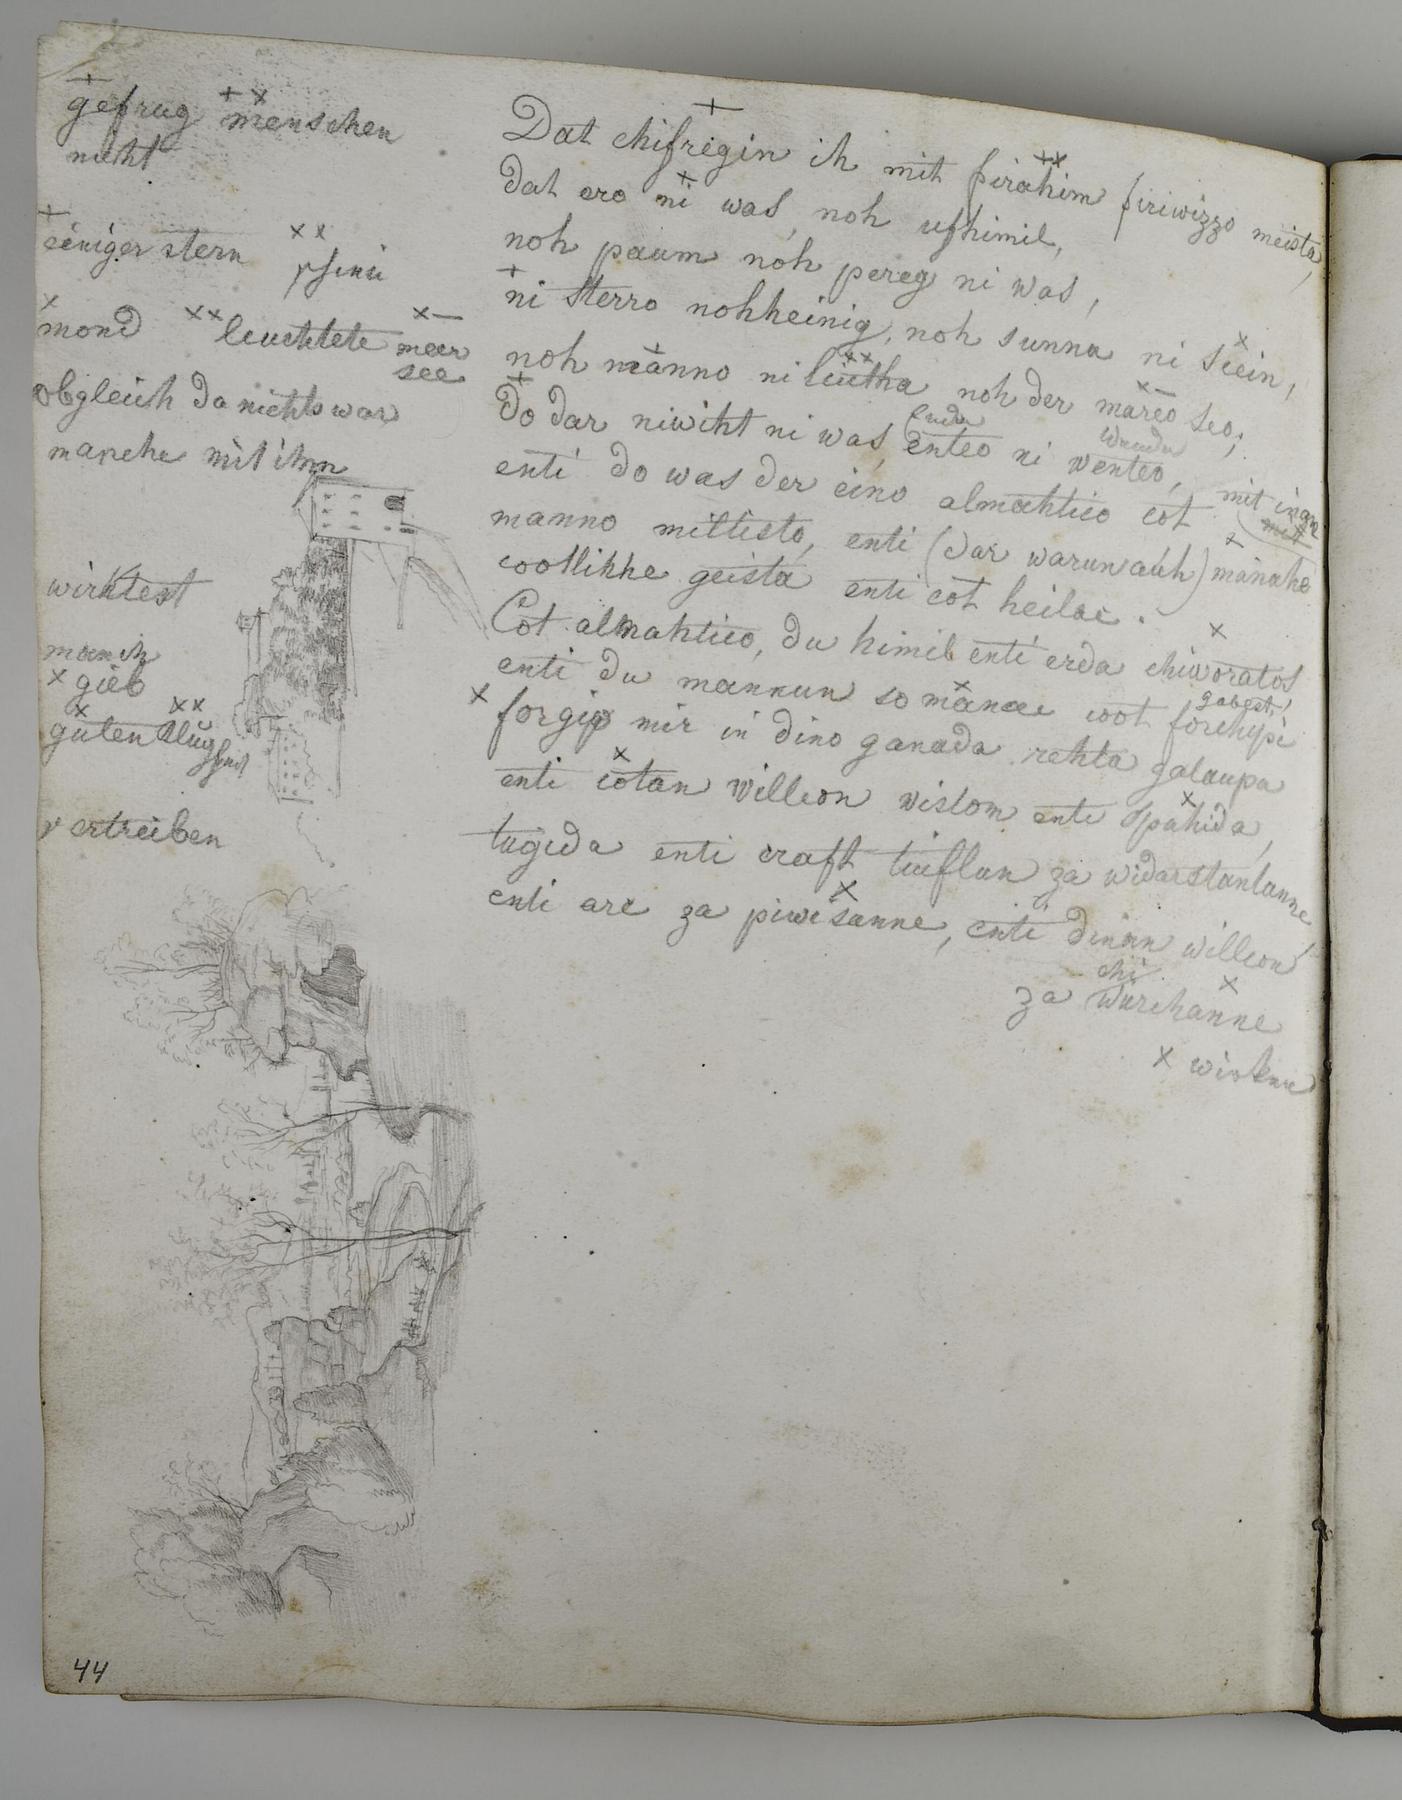 gefrug menschen
nicht
einiger stern schein
mond leuchtete meer
see
obgleich da nichts war
manche mit ihm
wirktest
manch
x gieb
guten klug
vertreiben
44
Dat chifregin ih mit firahim firiwizzo meista,
dat ero ni was, noh ufhimil,
noh paum noh pereg ni was,
ni sterro nohheinig, noh sunna ni scein,
noh manno ni liutha noh der mareo seo;
Do dar niwiht ni was, enteo ni wenteo,
enti do was der eino almahtico cot
manno miltisto, enti (dar warun auh) manahe mit inan
cootlihhe geista enti cot heilac.
Cot almahtico, du himil enti erda chiworatos
enti du mannun so manac coot forchipi
x forgip mir in dino ganada rehta galaupa
enti cotan willeon wistom enti spahida,
tugida enti craft tiuflun za widarstantanne,
enti arc za piwisanne, enti dinan willeon
za chi wurchanne
x wirken